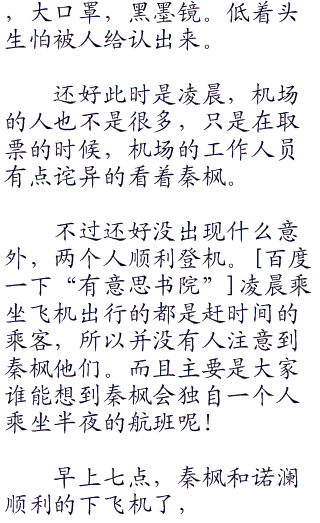 ，大口罩，黑墨镜。低着头
生怕被人给认出来。
还好此时是凌晨，机场
的人也不是很多，只是在取
票的时候，机场的工作人员
有点诧异的看着秦枫。
不过还好没出现什么意
外，两个人顺利登机。[百度
一下“有意思书院”]凌晨乘
坐飞机出行的都是赶时间的
乘客，所以并没有人注意到
秦枫他们。而且主要是大家
谁能想到秦枫会独自一个人
乘坐半夜的航班呢！
早上七点，秦枫和诺澜
顺利的下飞机了，